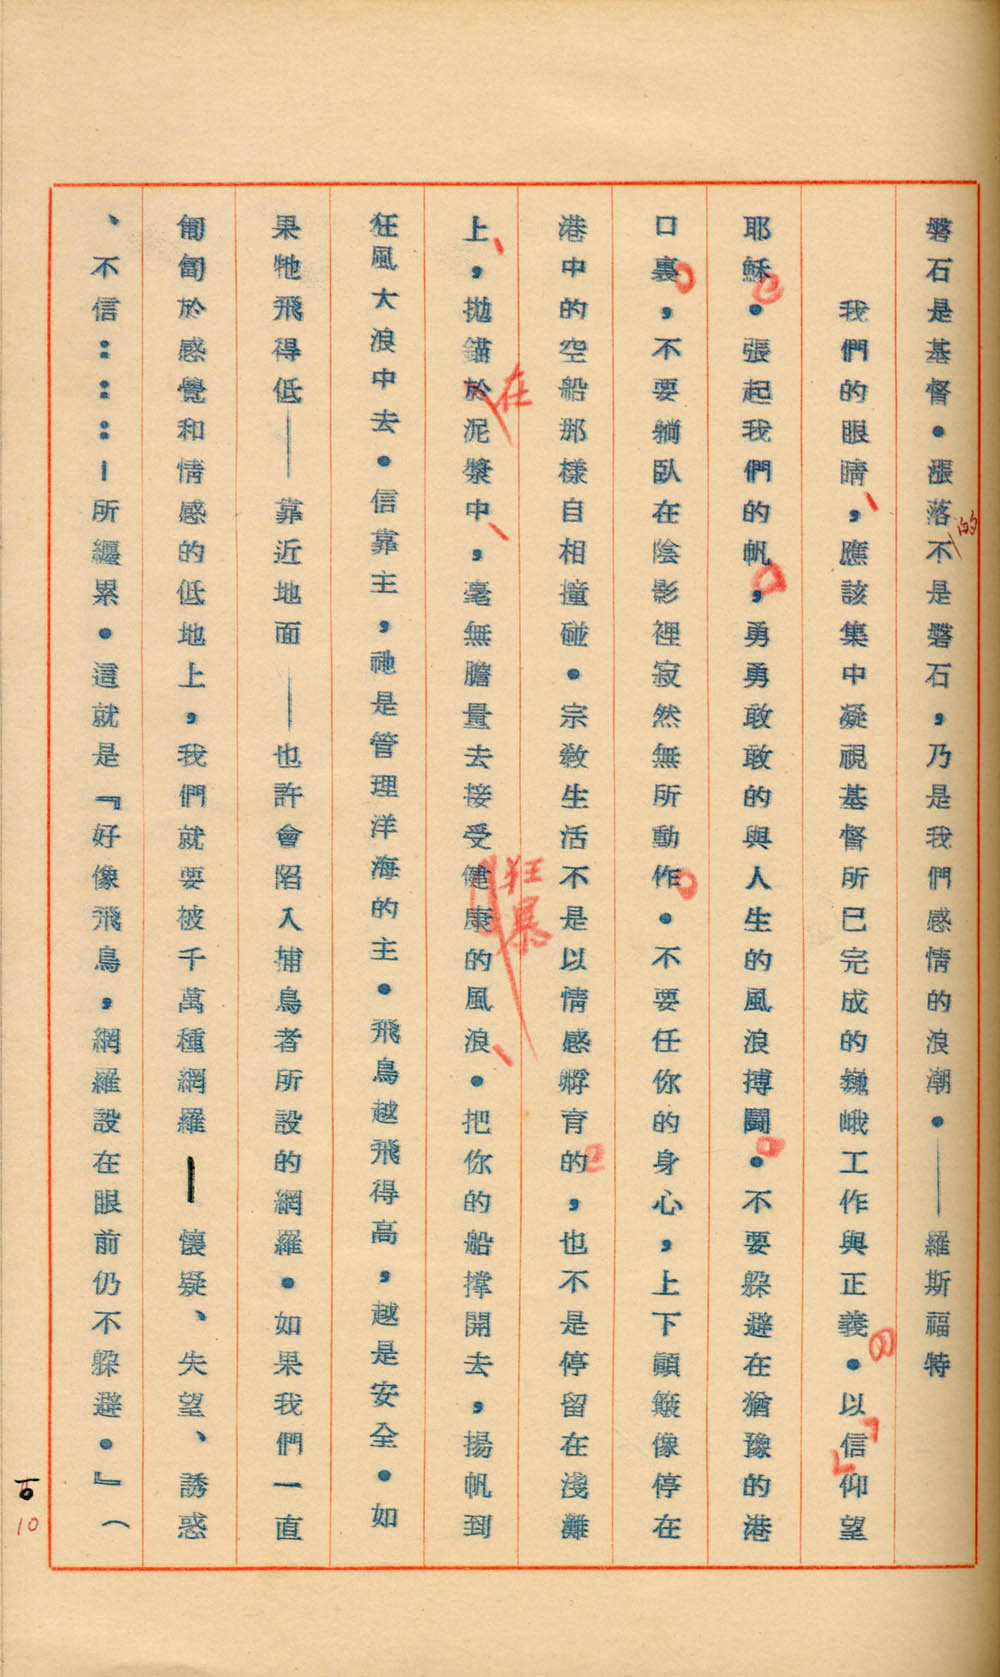 磐石是基督。漲落不是磐石，乃是我們感情的浪潮。——羅斯福特
的
我們的眼睛，應該集中凝視基督所已完成的巍峨工作與正義。以信仰望
耶穌。張起我們的帆，勇勇敢敢的與人生的風浪搏鬪。不要躱避在猶豫的港
口裏，不要躺臥在陰影裡寂然無所動作。不要任你的身心，上下顧簸像停在
港中的空船那樣自相撞碰。宗敎生活不是以情感孵育的，也不是停留在淺灘
上，拋錨於泥漿中，毫無膽量去接受健康的風浪。把你的船撑開去，揚帆到
在
狂暴
狂風大浪中去。信靠主，祂是管理洋海的主。飛鳥越飛得高，越是安全。如
果牠飛得低——靠近地面——也許會陷入捕鳥者所設的網羅。如果我們一直
匍匐於感覺和情感的低地上，我們就要被千萬種網羅—懷疑、失望、誘惑
、不信：：：—所纏累。這就是『好像飛鳥，網羅設在眼前仍不躱避。』（
10